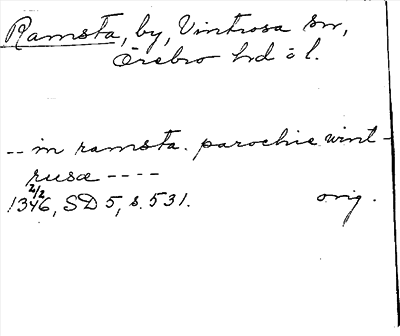 Ramsta, by, Vintrosa sn,
Örebro hd o l.
-- in ramsta. parochie wint-
rusæ ----
2/2
1346, SD 5, s. 531. orig.